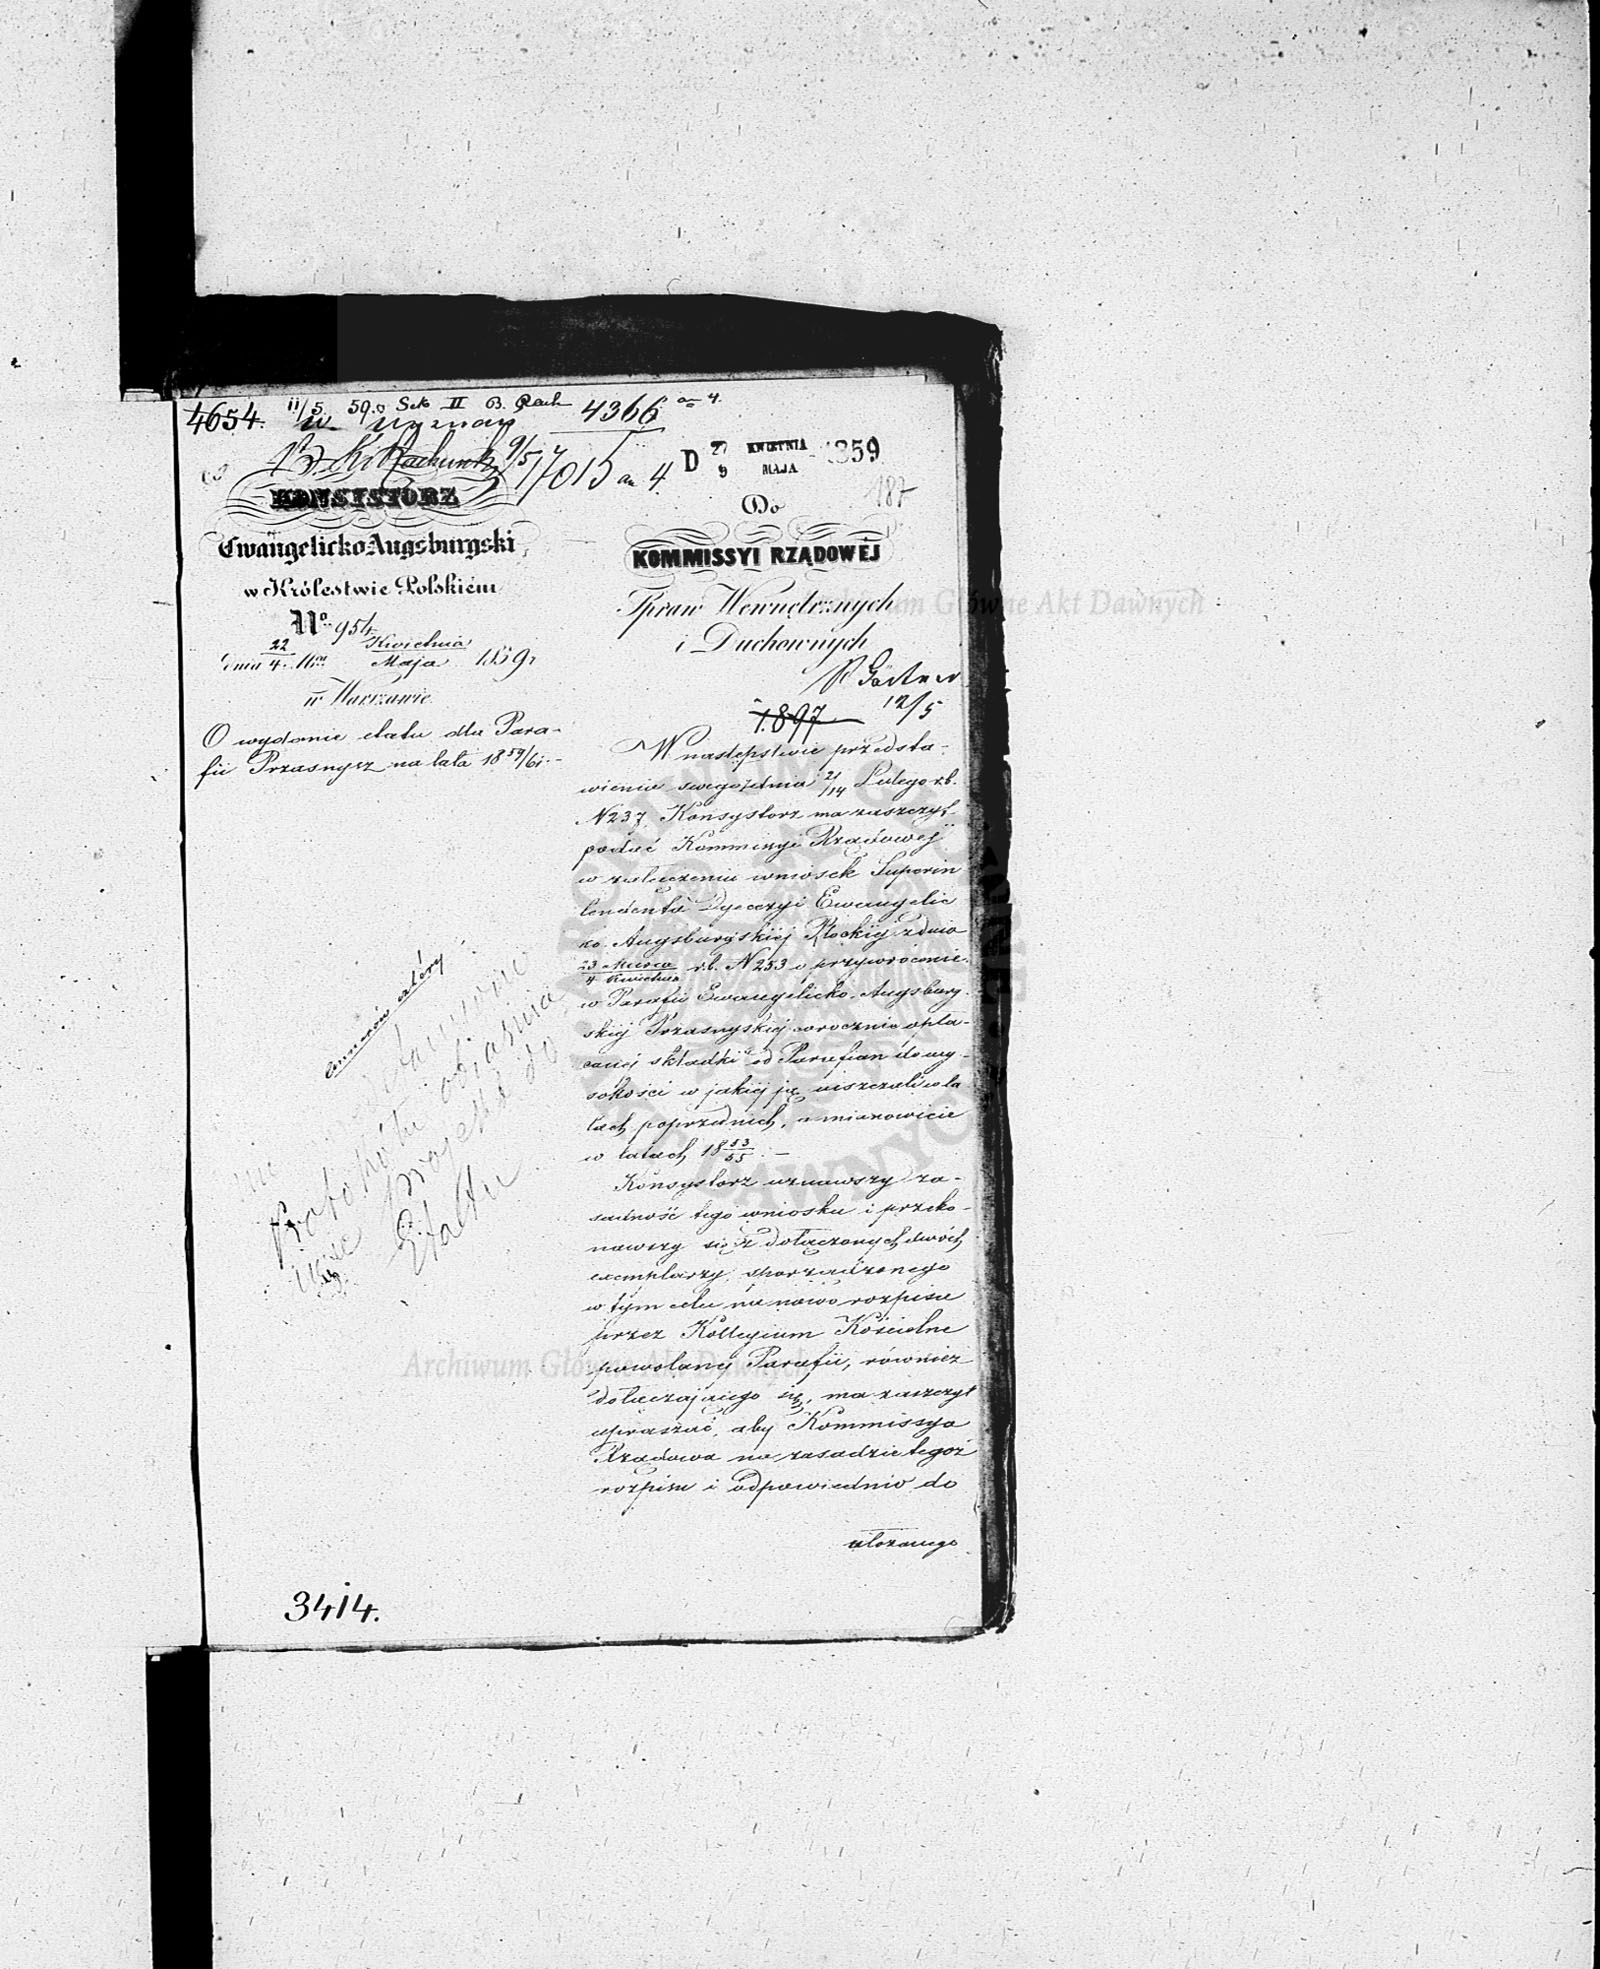 4654. 11/5 59. Sek II B. Rach 4366 an 4.
W. Wyznań
17015 an 4
D 27 KWIETNIA 1859
9 MAJA
187
KONSYSTORZ
Ewangelicko-Augsburgski
w Królestwie Polskiém
No. 954
dnia 22 Kwietnia
4 Maja 1859 r
w Warszawie
O wydanie etatu dla Para-
fii Przasnysz na lata 1859/61.-
Do
KOMMISSYI RZĄDOWÉJ
Spraw Wewnętrznych
i Duchownych
12/5
1897
W następstwie przedsta-
wienia swego z dnia Lutego r.b.
N 237 Konsystorz ma zaszczyt
podać Kommissyi Rządowej
w załączeniu wniosek Superin
tendenta Dyecezyi Ewangelic
ko-Augsburgskiej Płockiej z dnia
23 Marca
4 Kwietnia r.b. N 253 o przywrócenie
w Parafii Ewangelicko-Augsburg-
skiej Przasnyskiej corocznie opła-
canej składki od Parafian do wy-
sokości w jakiej ją uiszczali w la
tach poprzednich, a mianowicie
w latach 18 53/55 . -
Konsystorz uznawszy za-
sadność tego wniosku i przeko-
nawszy się z dołączonych dwóch
exemplarzy sporządzonego
w tym celu na nowo rozpisu
przez Kollegium Kościelne
powołanej Parafii, również
dołączającego się, ma zaszczyt
upraszać, aby Kommissya
Rządowa na zasadzie tegoż
rozpisu i odpowiednio do
ułożonego
Annexów cztéry
Protokółu objaśnia
projektu do
Etatu
3414.
Archiwum Główne Akt Dawnych
Archiwum Główne Akt Dawnych